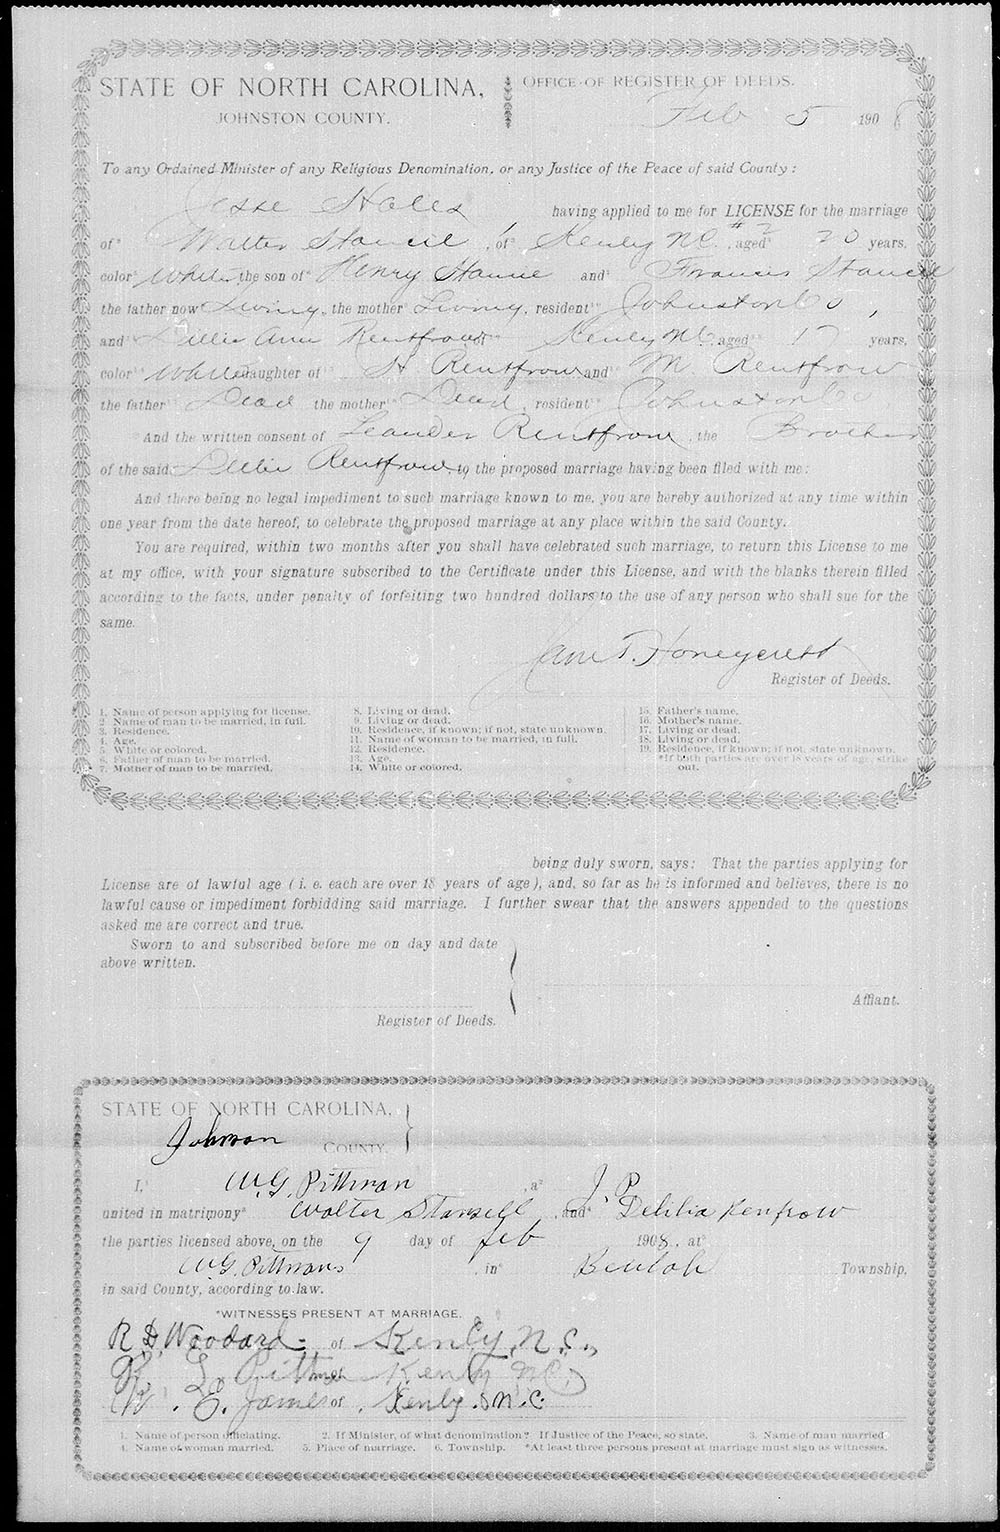 STATE OF NORTH CAROLINA,
JOHNSTON COUNTY.
OFFICE OF REGISTER OF DEEDS.
Feb 5 1908
To any Ordained Minister of any Religious Denomination, or any Justice of the Peace of said County:
Jesse Hales having applied to me for LICENSE for the marriage
of² Walter Stancil, of³ Kenly N.C. #2, aged⁴ 20 years,
color⁵ White, the son of⁶ Henry Stancil and⁷ Frances Stancil
the father now⁸ Living, the mother⁹ Living, resident¹⁰ Johnston Co,
and¹¹ Ann Rentfrow of¹² Kenly NC aged¹³ 17 years,
color¹⁴ White daughter of¹⁵ H Rentfrow and¹⁶ M. Rentfrow
the father¹⁷ Dead the mother¹⁸ Dead, resident¹⁹ Johnston Co
*And the written consent of Leander Rentfrow, the Brother
of the said Rentfrow, to the proposed marriage having been filed with me:
And there being no legal impediment to such marriage known to me, you are hereby authorized at any time within
one year from the date hereof, to celebrate the proposed marriage at any place within the said County.
You are required, within two months after you shall have celebrated such marriage, to return this License to me
at my office, with your signature subscribed to the Certificate under this License, and with the blanks therein filled
according to the facts, under penalty of forfeiting two hundred dollars to the use of any person who shall sue for the
same.
Sam T. Honeycutt
Register of Deeds.
1. Name of person applying for license.
2. Name of man to be married, in full.
3. Residence.
4. Age.
5. White or colored.
6. Father of man to be married.
7. Mother of man to be married.
8. Living or dead.
9. Living or dead.
10. Residence, if known; if not, state unknown.
11. Name of woman to be married, in full.
12. Residence.
13. Age.
14. White or colored.
15. Father's name.
16. Mother's name.
17. Living or dead.
18. Living or dead.
19. Residence, if known; if not, state unknown.
*If both parties are over 18 years of age, strike
out.
being duly sworn, says: That the parties applying for
License are of lawful age (i. e. each are over 18 years of age), and, so far as he is informed and believes, there is no
lawful cause or impediment forbidding said marriage. I further swear that the answers appended to the questions
asked me are correct and true.
Sworn to and subscribed before me on day and date
above written.
Affiant.
Register of Deeds.
STATE OF NORTH CAROLINA,
Johnson COUNTY.
I,¹ W.G. Pittman, a² J. P.
united in matrimony³ Walter Stansell and⁴ Delilia Renfrow
the parties licensed above, on the 9 day of feb 1908, at⁵
W.G. Pittmans, in⁶ Beulah Township,
in said County, according to law.
*WITNESSES PRESENT AT MARRIAGE.
R. D. Woodard of Kenly, N. C.,
R. L. Pittman of Kenly N.C.
W. E. James of Kenly N.C.
1. Name of person officiating. 2. If Minister, of what denomination? If Justice of the Peace, so state. 3. Name of man married
4. Name of woman married. 5. Place of marriage. 6. Township. *At least three persons present at marriage must sign as witnesses.